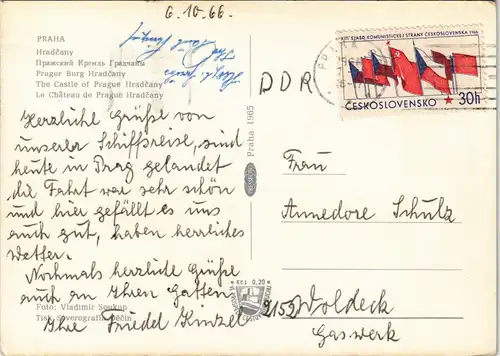 6.10.66.
PRAHA
Hradčany
Пражский Кремль Градчаны
Prager Burg Hradčany
The Castle of Prague Hradčany
Le Château de Prague Hradčany
DDR
XIII. SJEZD KOMUNISTICKÉ STRANY ČESKOSLOVENSKA 1966
ČESKOSLOVENSKO 30h
Herzliche Grüße von
unserer Schiffsreise, sind
heute in Prag gelandet
die Fahrt war sehr schön
und hier gefällt es uns
auch gut, haben herrliches
Wetter.
Nochmals herzliche Grüße
auch an Ihren Gatten
Ihre Friedel Kinzel
Praha 1965
Frau
Annedore Schulz
2152 Woldeck
Gaswerk
Kčs 0,20
Foto: Vladimír Soukup
Tisk Severografia Děčín